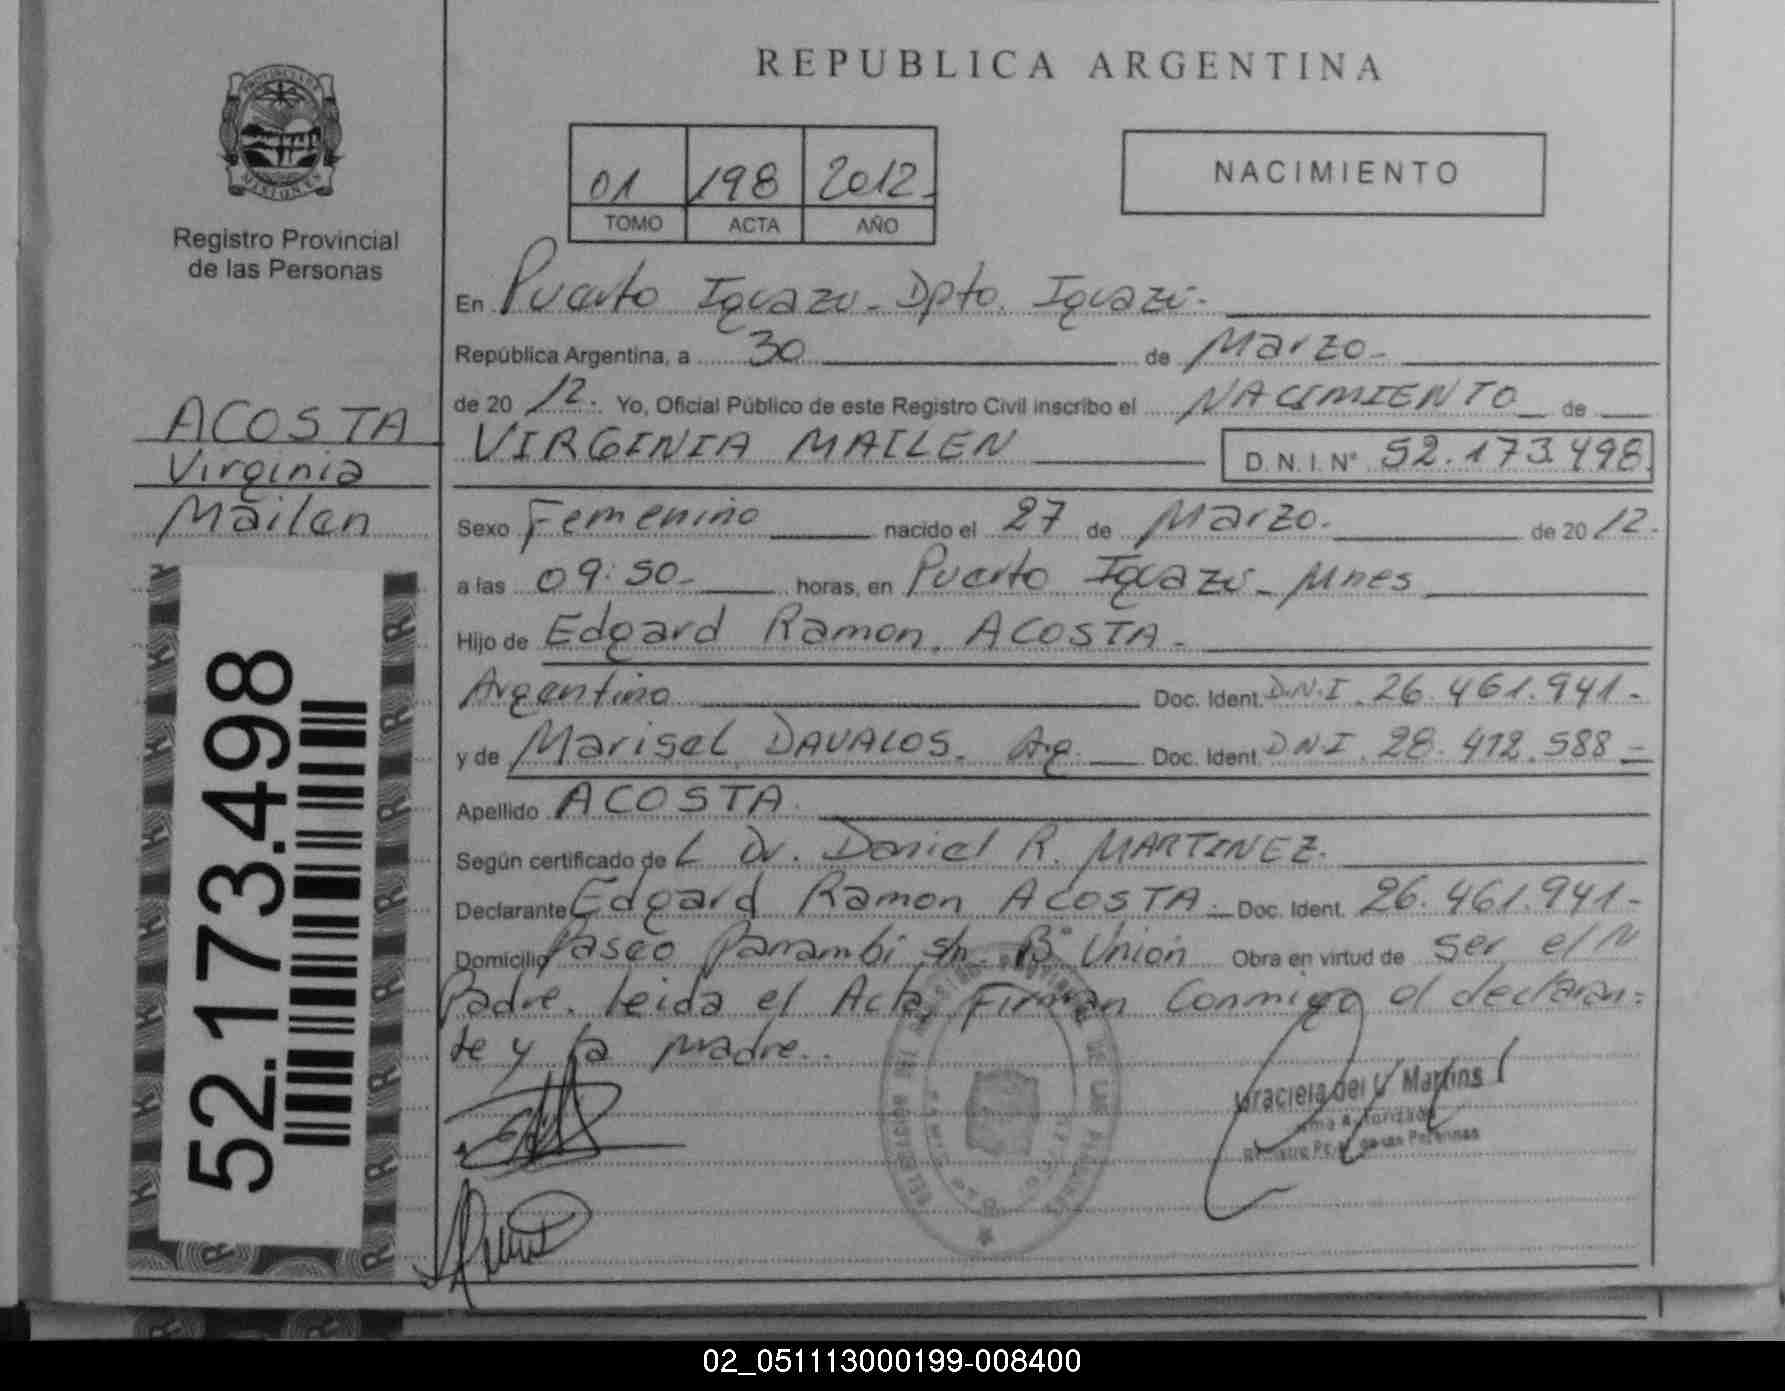 REPUBLICA ARGENTINA
PROVINCIA DE
MISIONES
Registro Provincial
de las Personas
01 198 2012.
TOMO ACTA AÑO
NACIMIENTO
En Puerto Iguazu - Dpto. Iguazú.
República Argentina, a 30 de Marzo -
de 20 12. Yo, Oficial Público de este Registro Civil inscribo el NACIMIENTO de
VIRGINIA MAILEN D. N. I. N° 52.173.498
ACOSTA
Virginia
Mailen
Sexo Femenino nacido el 27 de Marzo. de 20 12.
a las 09:50 - horas, en Puerto Iguazú - Mnes
Hijo de Edgard Ramon. ACOSTA -
Argentino Doc. Ident. D.N.I. 26.461.941 -
y de Marisel DAVALOS. Ag. Doc. Ident. DNI. 28.412.588 -
Apellido ACOSTA.
Según certificado de L Dr. Daniel R. MARTINEZ.
Declarante Edgard Ramon ACOSTA - Doc. Ident. 26.461.941 -
Domicilio Paseo Panambi s/n. B° Unión Obra en virtud de ser el
Padre. leida el Acta, Firman Conmigo el declaran=
te y la madre..
52.173.498
Graciela del Martins
Firma Autorizada
Registro Pcial. de las Personas
02_051113000199-008400